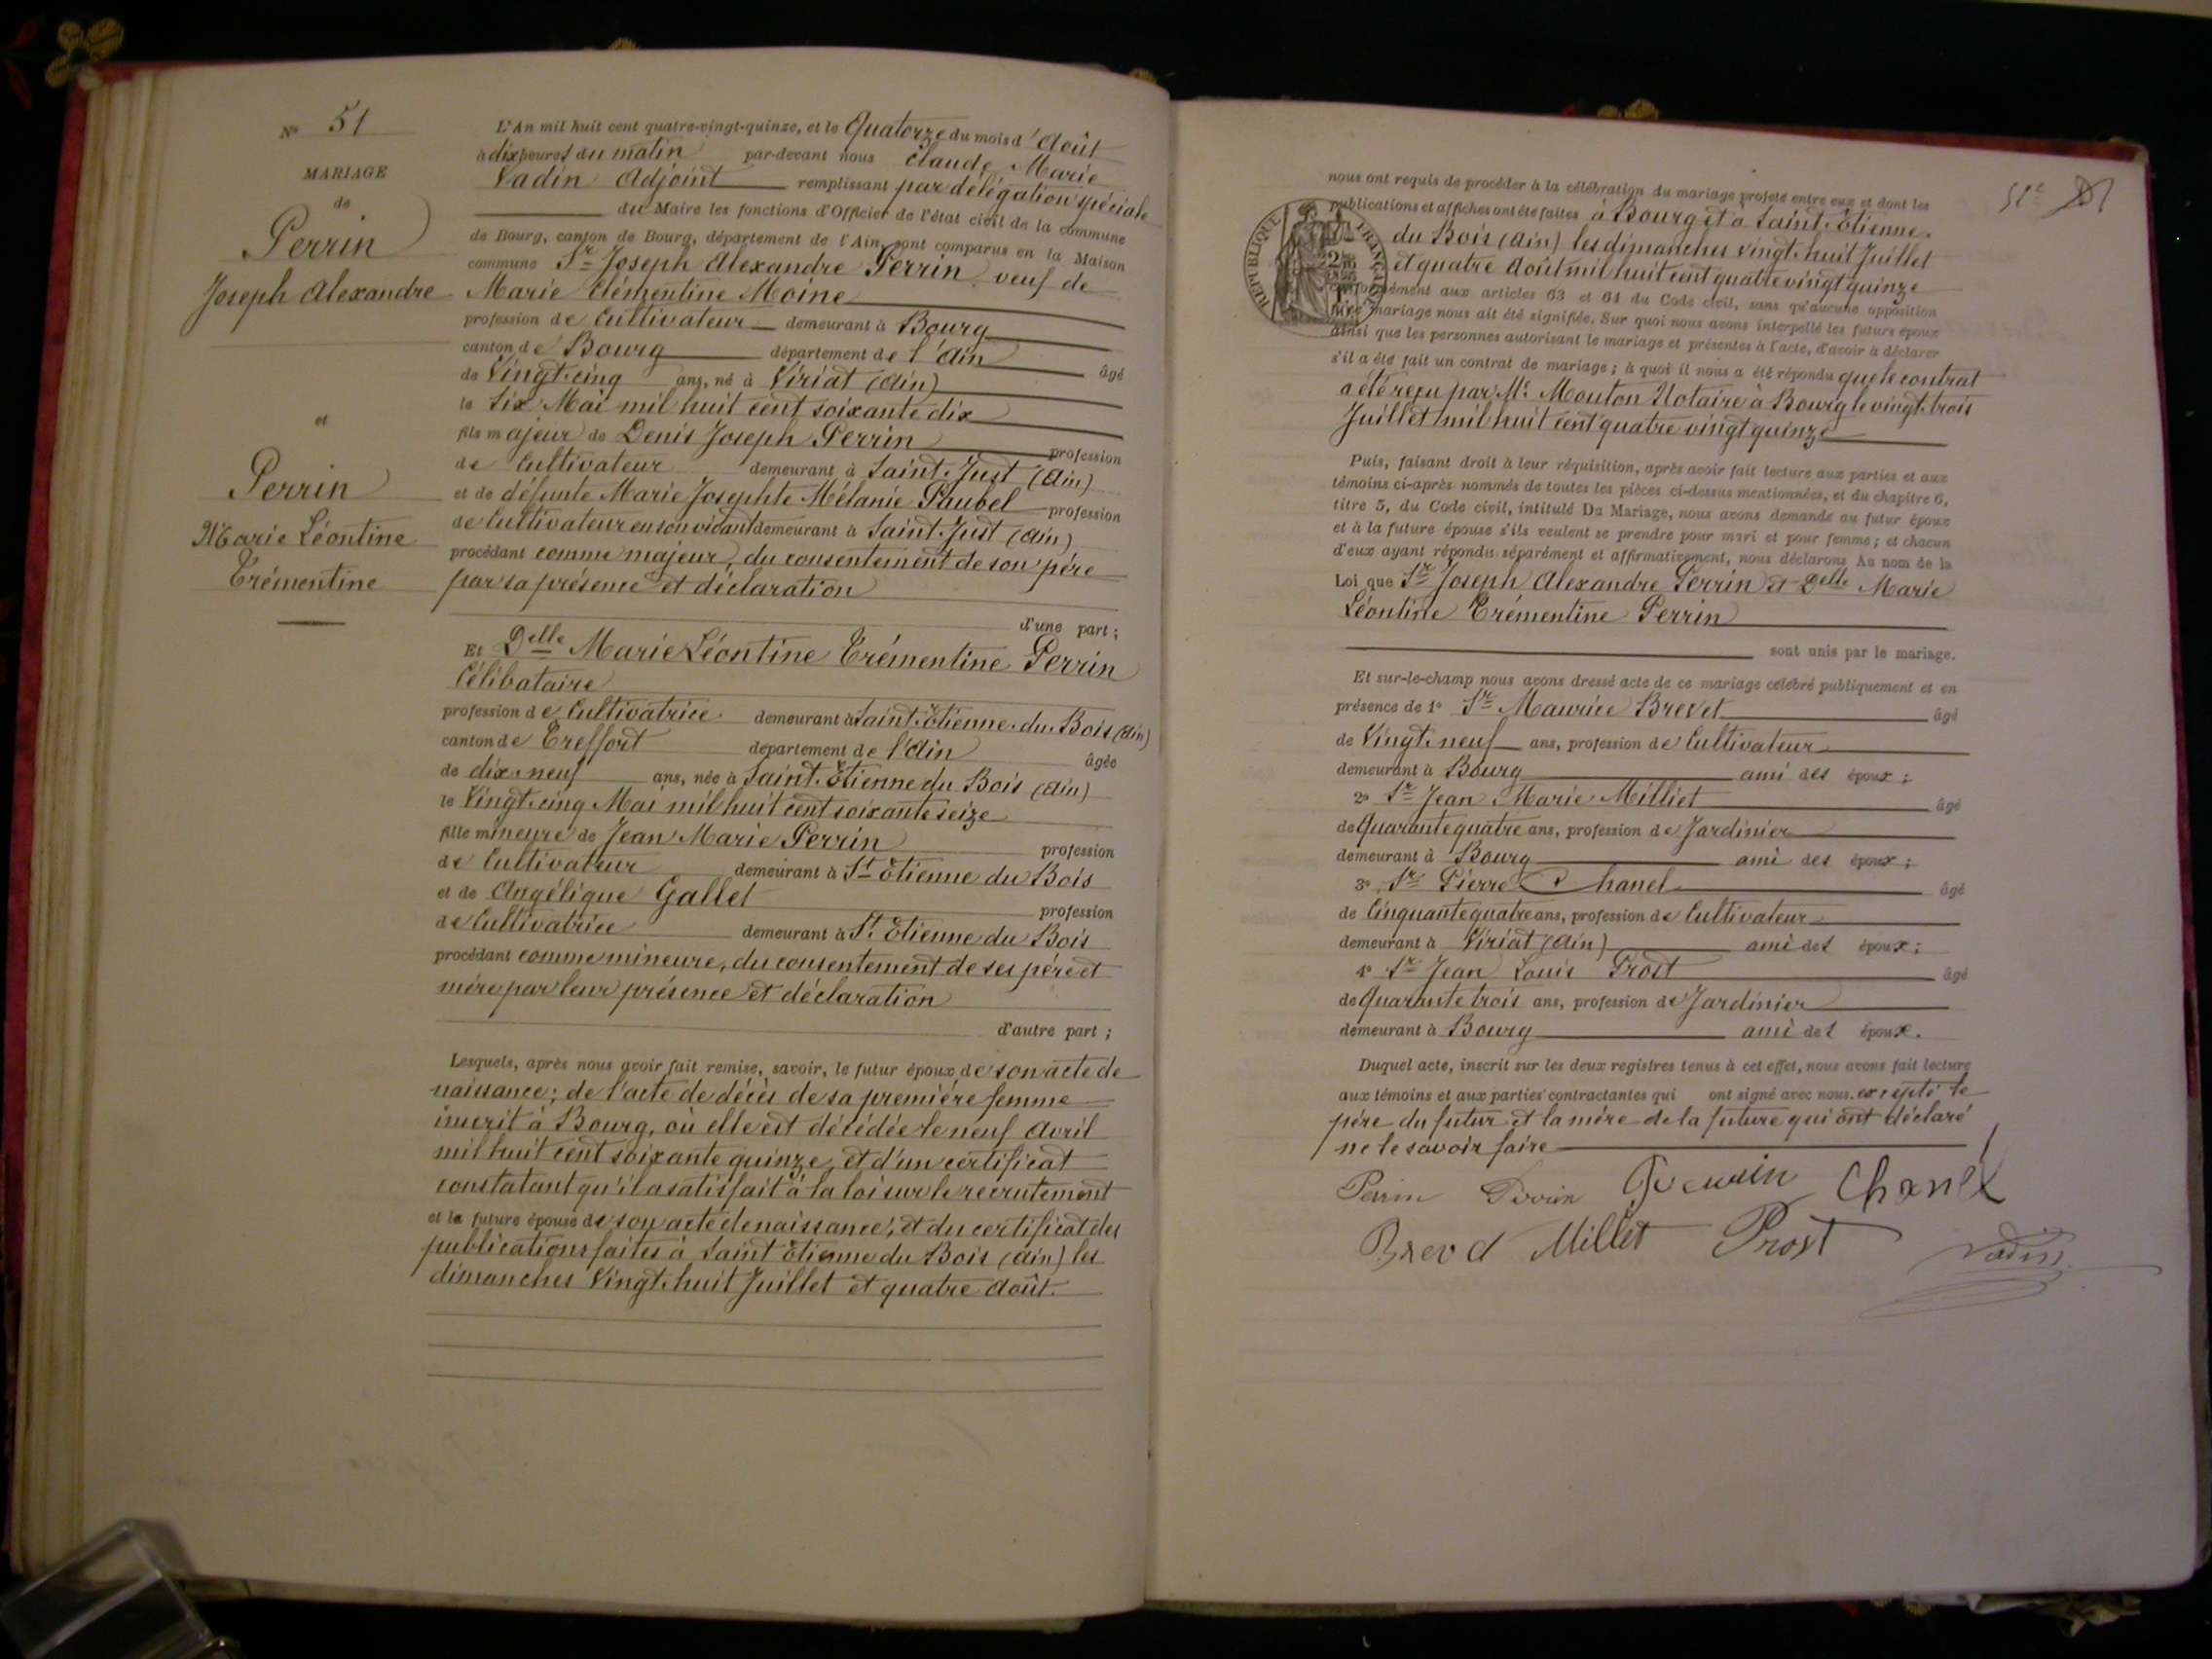 N° 51
MARIAGE
de
Perrin
Joseph Alexandre
et
Perrin
Marie Léontine
Trémentine
L'An mil huit cent quatre-vingt-quinze, et le Quatorze du mois d'Août
à dix heures du matin par-devant nous Claude, Marie
Vadin Adjoint remplissant par délégation spéciale
du Maire les fonctions d'Officier de l'état civil de la commune
de Bourg, canton de Bourg, département de l'Ain, sont comparus en la Maison
commune Sr Joseph Alexandre Perrin, veuf de
Marie Clémentine Moine
profession de Cultivateur demeurant à Bourg
canton de Bourg département de l'Ain âgé
de Vingt-cinq ans, né à Viriat (Ain)
le Six Mai mil huit cent soixante dix
fils majeur de Denis Joseph Perrin profession
de Cultivateur demeurant à Saint-Just (Ain)
et de défunte Marie Josephte Mélanie Paubel profession
de Cultivateur en son vivant demeurant à Saint-Just (Ain)
procédant comme majeur, du consentement de son père
par sa présence et déclaration
d'une part ;
Et Delle Marie Léontine Trémentine Perrin
Célibataire
profession de Cultivatrice demeurant à Saint-Etienne-du-Bois (Ain)
canton de Treffort département de l'Ain âgée
de dix-neuf ans, née à Saint-Etienne du Bois (Ain)
le Vingt-cinq Mai mil huit cent soixante seize
fille mineure de Jean Marie Perrin profession
de Cultivateur demeurant à St Etienne du Bois
et de Angélique Gallet profession
de Cultivatrice demeurant à St. Etienne du Bois
procédant comme mineure, du consentement de ses père et
mère par leur présence et déclaration
d'autre part ;
Lesquels, après nous avoir fait remise, savoir, le futur époux de son acte de
naissance ; de l'acte de décès de sa première femme
inscrit à Bourg, où elle est décédée le neuf Avril
mil huit cent soixante quinze, et d'un certificat
constatant qu'il a satisfait à la loi sur le recrutement
et la future épouse de son acte de naissance, et du certificat des
publications faites à Saint Etienne du Bois (Ain) les
dimanches Vingt-huit Juillet et quatre Août.
51e
nous ont requis de procéder à la célébration du mariage projeté entre eux et dont les
publications et affiches ont été faites à Bourg et à Saint-Etienne-
du Bois (Ain) les dimanches vingt-huit Juillet
et quatre Août mil huit cent quatre vingt quinze
conformément aux articles 63 et 64 du Code civil, sans qu'aucune opposition
au dit mariage nous ait été signifiée. Sur quoi nous avons interpellé les futurs époux
ainsi que les personnes autorisant le mariage et présentes à l'acte, d'avoir à déclarer
s'il a été fait un contrat de mariage ; à quoi il nous a été répondu que le contrat
a été reçu par Me Mouton Notaire à Bourg le vingt-trois
Juillet mil huit cent quatre vingt quinze
RÉPUBLIQUE FRANÇAISE
Puis, faisant droit à leur réquisition, après avoir fait lecture aux parties et aux
témoins ci-après nommés de toutes les pièces ci-dessus mentionnées, et du chapitre 6,
titre 5, du Code civil, intitulé Du Mariage, nous avons demandé au futur époux
et à la future épouse s'ils veulent se prendre pour mari et pour femme ; et chacun
d'eux ayant répondu séparément et affirmativement, nous déclarons Au nom de la
Loi que Sr Joseph Alexandre Perrin et Delle Marie
Léontine Trémentine Perrin
sont unis par le mariage.
Et sur-le-champ nous avons dressé acte de ce mariage célébré publiquement et en
présence de 1° Sr Maurice Brevet âgé
de Vingt-neuf ans, profession de Cultivateur
demeurant à Bourg ami des époux ;
2° Sr Jean Marie Milliet âgé
de Quarante quatre ans, profession de Jardinier
demeurant à Bourg ami des époux ;
3° Sr Pierre Chanel âgé
de Cinquante quatre ans, profession de Cultivateur
demeurant à Viriat (Ain) ami des époux ;
4° Sr Jean Louis Prost âgé
de Quarante trois ans, profession de Jardinier
demeurant à Bourg ami des époux.
Duquel acte, inscrit sur les deux registres tenus à cet effet, nous avons fait lecture
aux témoins et aux parties contractantes qui ont signé avec nous, excepté le
père du futur et la mère de la future qui ont déclaré
ne le savoir faire
Perrin Perrin Chanel
Brevet Millet Prost Vadin